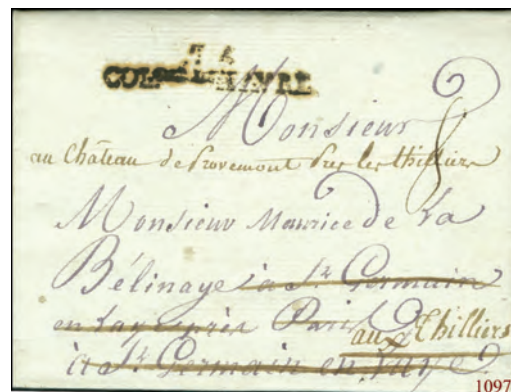 COL HAVRE
Monsieur
8
au Château de Provemont Pres les thilliers
Monsieur Maurice de la
Bélinaye à St. Germain
en Laye près Paris
aux Thilliers
à St. Germain en Laye
1097